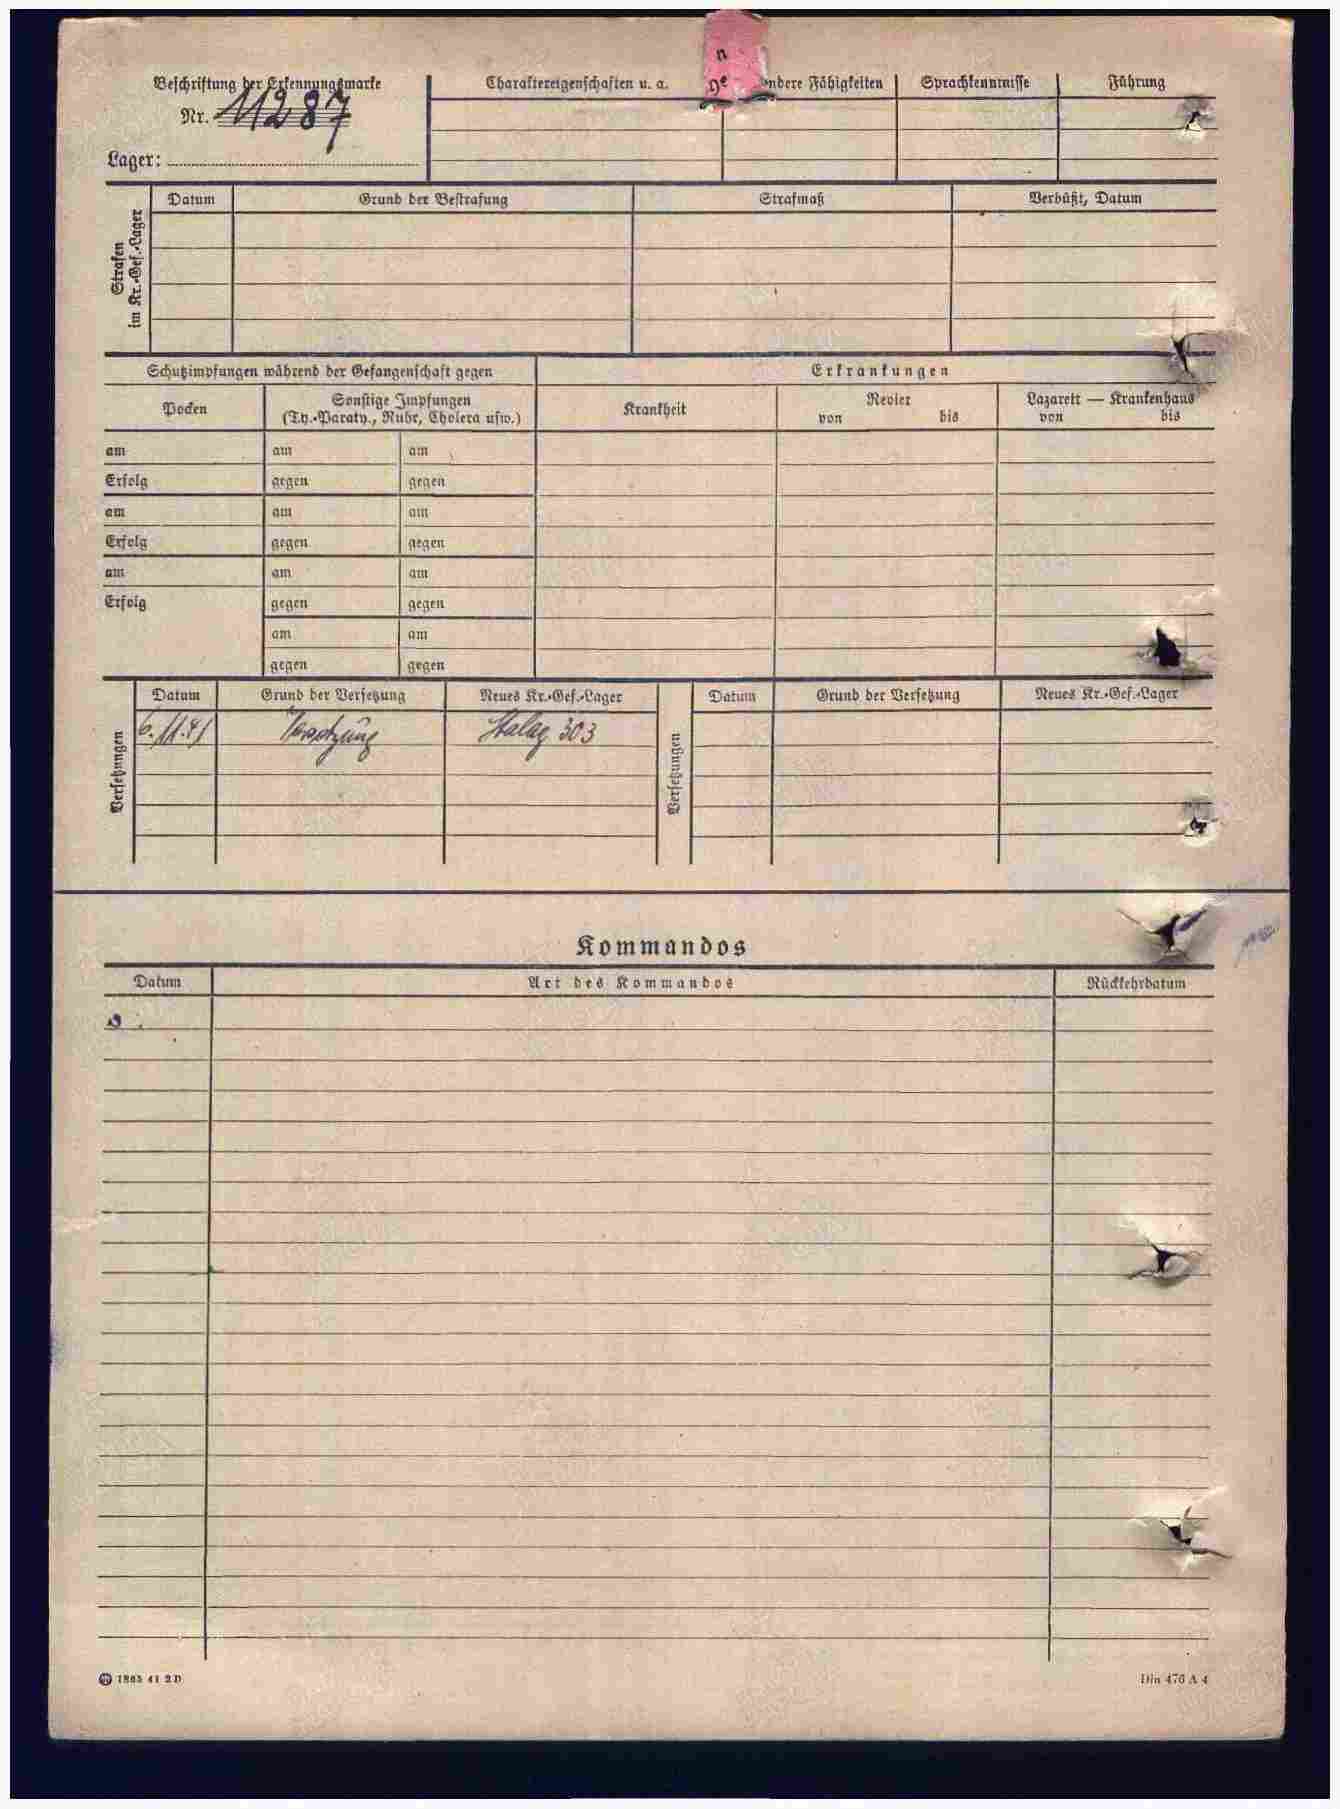 Beschriftung der Erkennungsmarke
Nr. 11287
Lager:
Charaktereigenschaften u. a.
n
ne
ondere Fähigkeiten
Sprachkenntnisse
Führung
Strafen
im Kr.-Gef.-Lager
Datum
Grund der Bestrafung
Strafmaß
Verbüßt, Datum
Schutzimpfungen während der Gefangenschaft gegen
Erkrankungen
Pocken
Sonstige Impfungen
(Ty.-Paraty., Ruhr, Cholera usw.)
Krankheit
Revier
von bis
Lazarett — Krankenhaus
von bis
am am am
Erfolg gegen gegen
am am am
Erfolg gegen gegen
am am am
Erfolg gegen gegen
am am
gegen gegen
Versetzungen
Datum Grund der Versetzung Neues Kr.-Gef.-Lager
6.11.41 Versetzung Stalag 303
Versetzungen
Datum Grund der Versetzung Neues Kr.-Gef.-Lager
Kommandos
Datum Art des Kommandos Rückkehrdatum
1865 41 2 D
Din 476 A 4